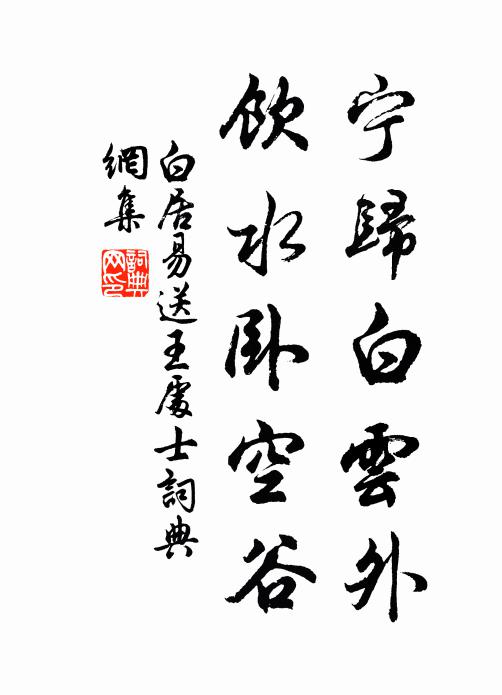 宁歸白雲外
飲水臥空谷
白居易送王處士詞典
網集
詞典
网印